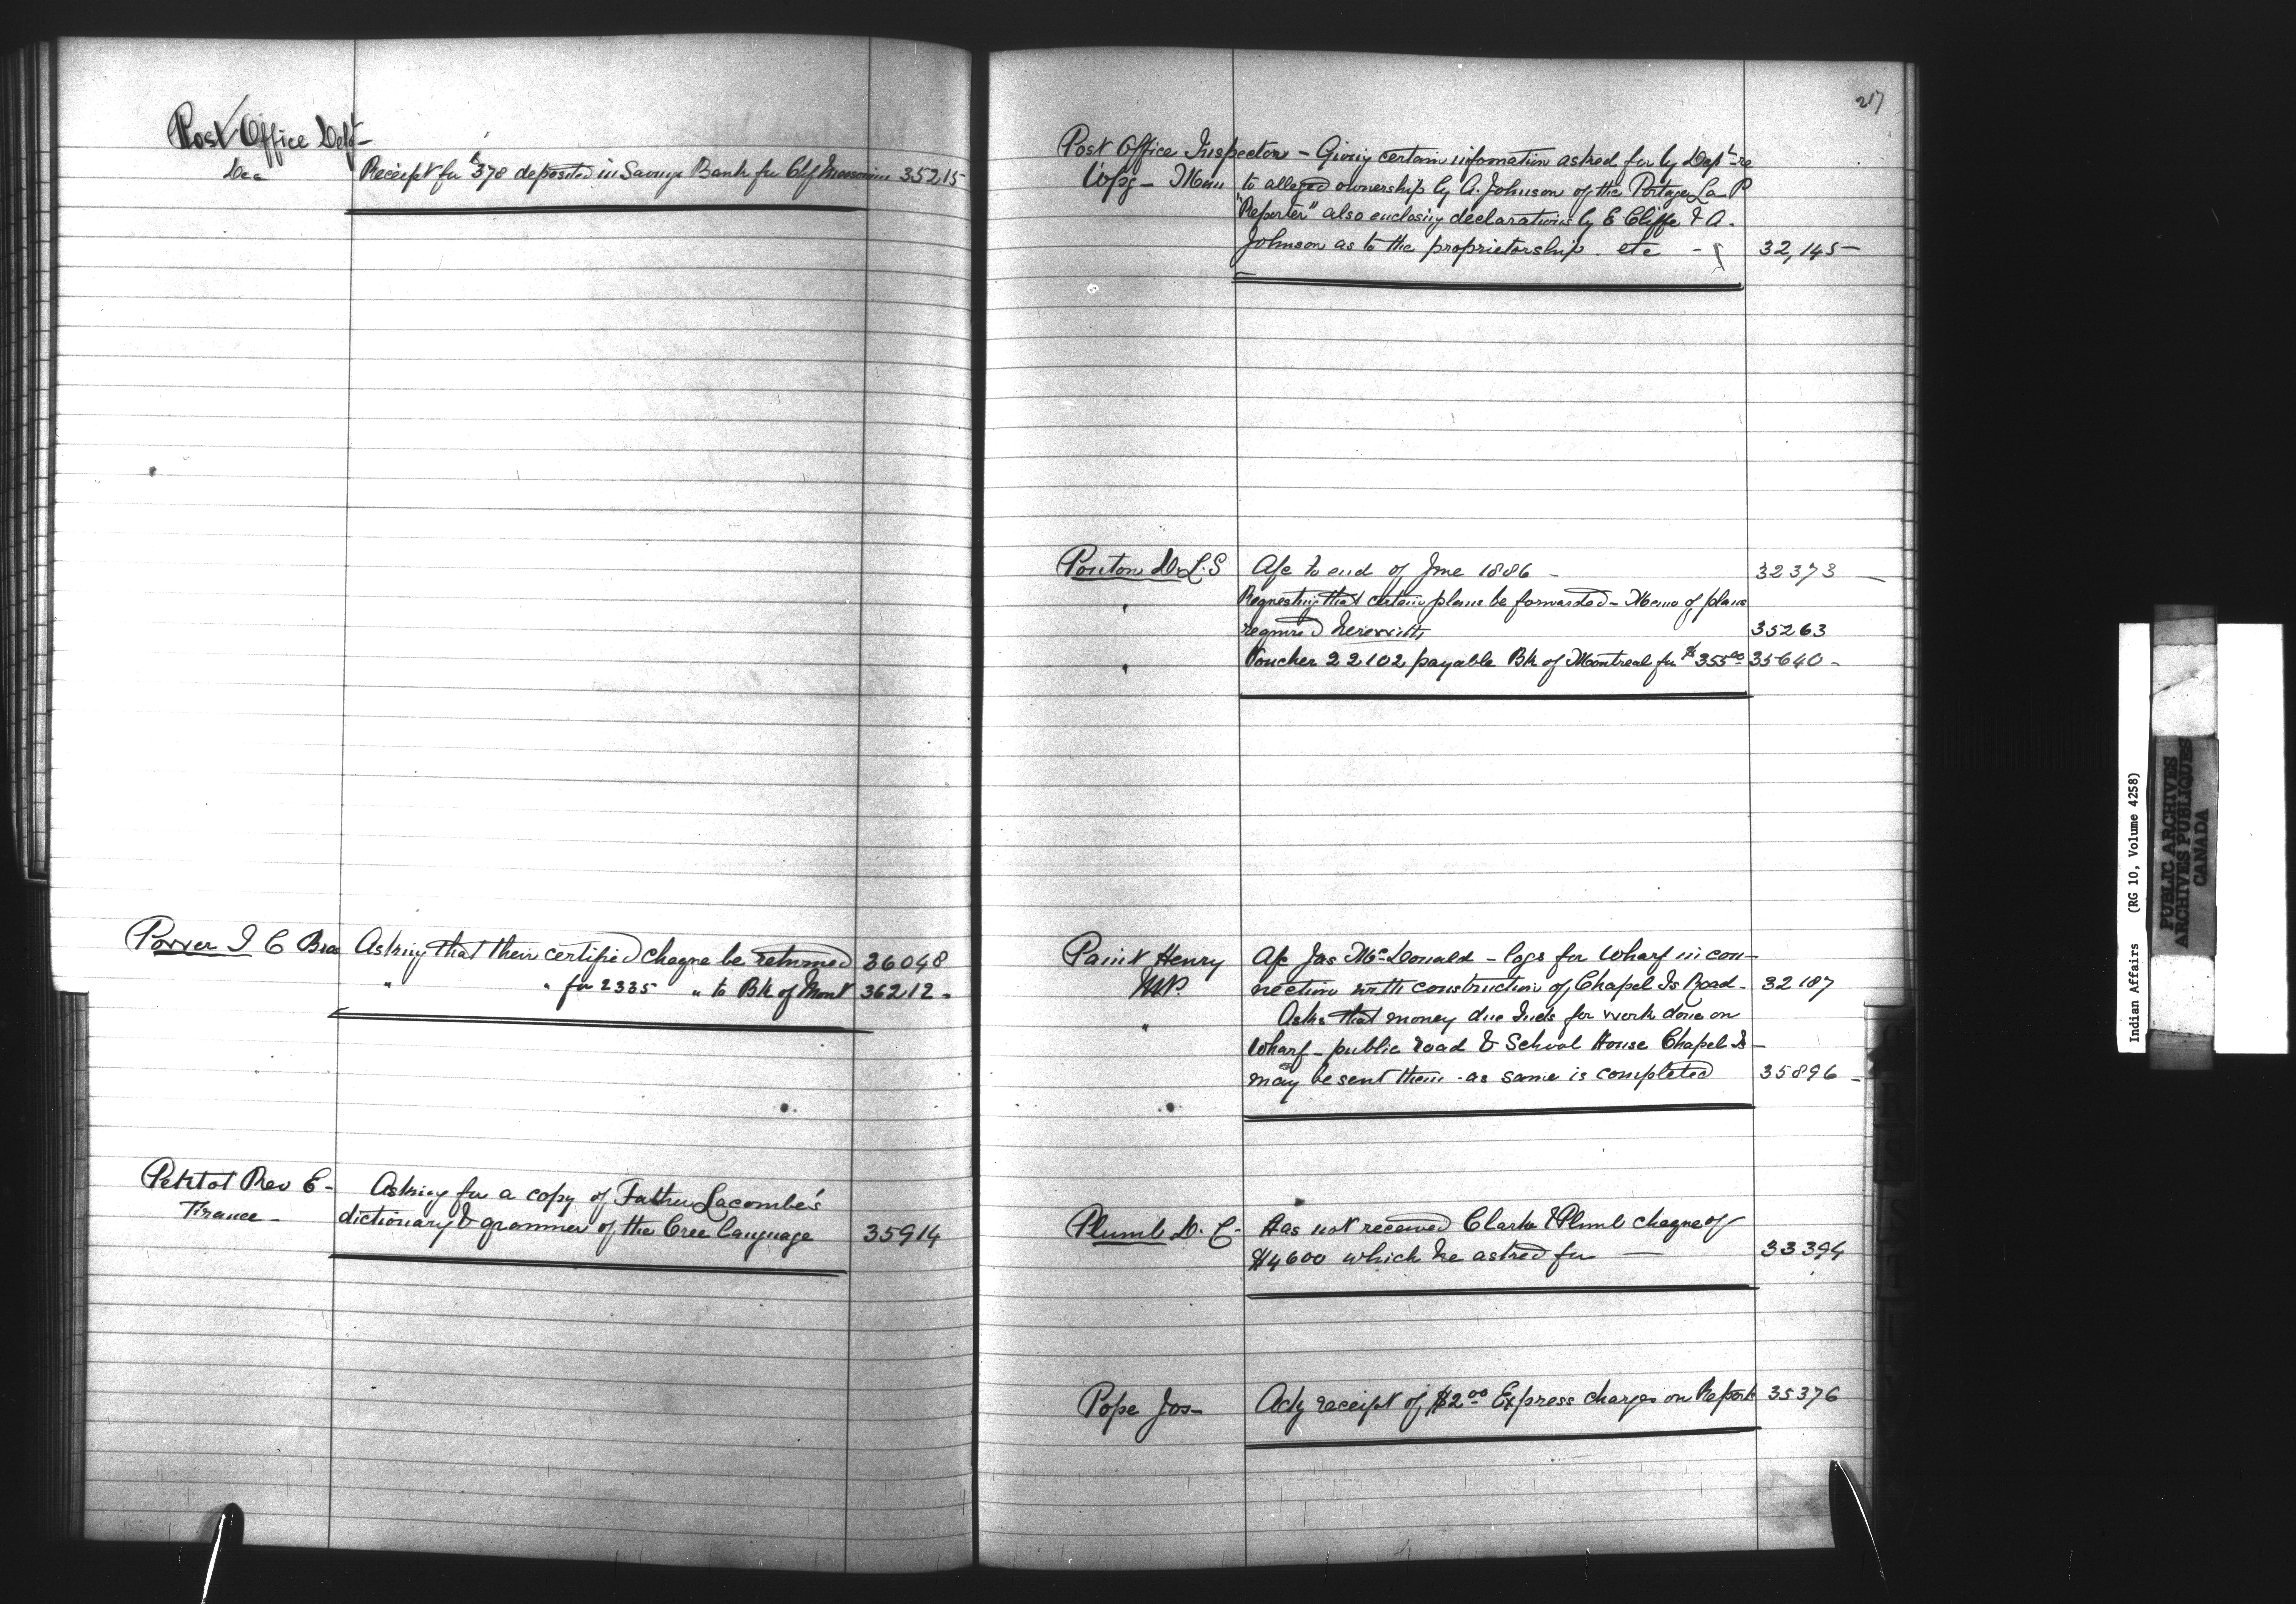 Post Office Dept -
Dec Receipt for $378 deposited in Savings Bank for Chf 35215
Power I C Bros Asking that their certified cheque be returned 36048
" " for 2335 " to Bk of Mont 36212 -
Petitot Rev E - Asking for a copy of Father Lacombe's
France - dictionary & grammer of the Cree language 35914
217
Post Office Inspector - Giving certain information asked for by Dept re
Wpg - Man to alleged ownership by A. Johnson of the Portage La P
"Reporter" also enclosing declarations by E Cliffe & A.
Johnson as to the proprietorship. etc - 32,145 -
Ponton D.L.S a/c to end of June 1886 - 32373 -
" Requesting that certain plans be forwarded - Memo of plans
required herewith 35263
" Voucher 22102 payable Bk of Montreal for $355.00 35640 -
Paint Henry a/c Jas McDonald - logs for Wharf in con-
MP. nection with construction of Chapel Is Road - 32187
" Asks that money due Inds for work done on
Wharf - public road & School House Chapel Is -
may be sent them - as same is completed 35896 -
Plumb D. C. Has not received Clarke & Plumb cheque of
$4600 which he asked for - 33394
Pope Jos - Ackg receipt of $2.00 Express charges on Report 35376
Indian Affairs (RG 10, Volume 4258)
PUBLIC ARCHIVES
ARCHIVES PUBLIQUES
CANADA